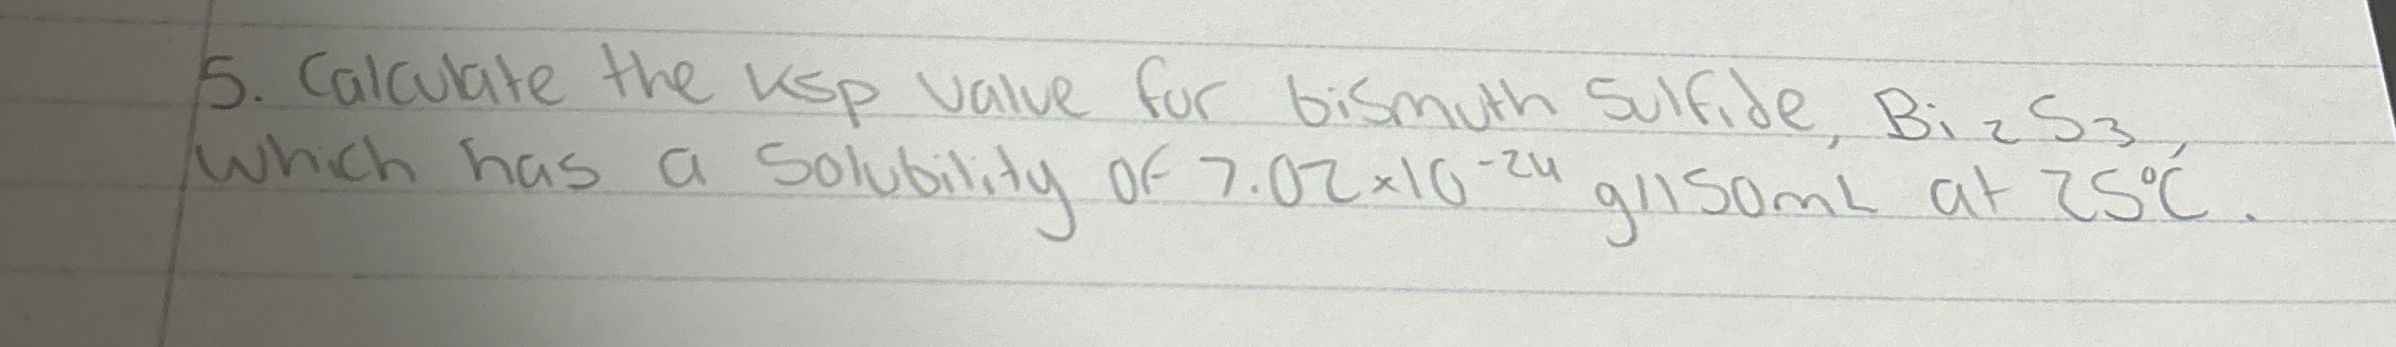 5. Calculate the Ksp value for bismuth Sulfide, Bi2S3,
which has a Solubility of 7.02×10^-24 g/150mL at 25°C.